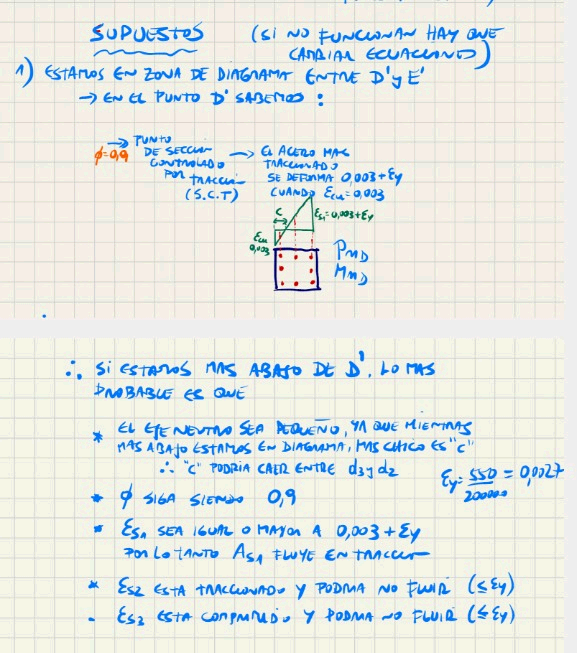 SUPUESTOS (SI NO FUNCIONAN HAY QUE
CAMBIAR ECUACIONES)
1) ESTAMOS EN ZONA DE DIAGRAMA ENTRE D' y E'
→ EN EL PUNTO D' SABEMOS :
φ=0,9
→ PUNTO
DE SECCION
CONTROLADO
POR TRACCION
(S.C.T)
→ EL ACERO MAS
TRACCIONADO
SE DEFORMA 0,003+εy
CUANDO εcu=0,003
c
εs1=0,003+εy
εcu
0,003
PnD
MnD
∴ SI ESTAMOS MAS ABAJO DE D', LO MAS
PROBABLE ES QUE
* EL EJE NEUTRO SEA PEQUEÑO, YA QUE MIENTRAS
MAS ABAJO ESTAMOS EN DIAGRAMA, MAS CHICO ES "c"
∴ "c" PODRIA CAER ENTRE d3 y d2
εy = 550/200000 = 0,0027
* φ SIGA SIENDO 0,9
* εs1 SEA IGUAL O MAYOR A 0,003+εy
POR LO TANTO As1 FLUYE EN TRACCION
* εs2 ESTA TRACCIONADO Y PODRIA NO FLUIR (≤εy)
- εs3 ESTA COMPRIMIDO Y PODRIA NO FLUIR (≤εy)